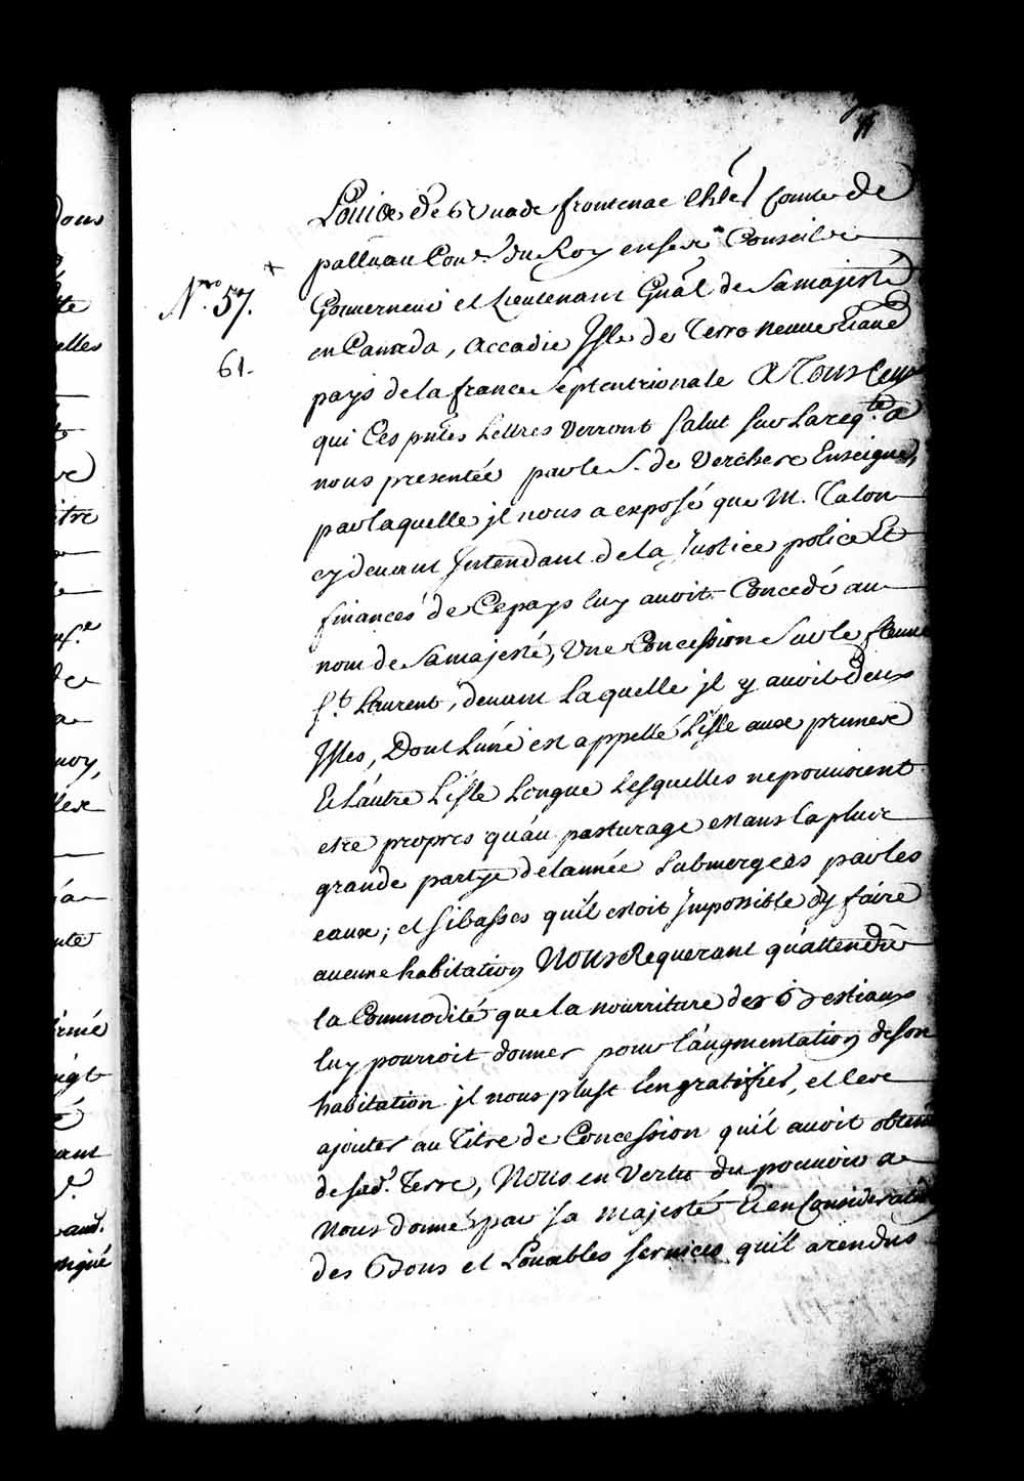 Louis de Buade frontenac Ch.ler Comte de
palluau Con.er du Roy en ses Conseils
N.ro 57.
Gouverneur et Lieutenant Gnãl de Samajesté
61.
en Canada, accadie Isle de Terre neuve Et autres
pays de la france septentrionale A Tous Ceux
qui Ces pntes Lettres verront Salut sur Lareq.te a
nous presentée par le S. de Verchere Enseigne,
par laquelle jl nous a exposé que M. Talon
cy devant Jntendant de la Justice police Et
finances de Cepays luy avoit Concedé au
nom de Samajesté, Une Concession Sur le fleuve
S.t Laurent, devant Laquelle jl y avoit deux
Isles, Dont L'une est appellé L'isle aux prunes
Et L'autre L'isle Longue Lesquelles nepouvoient
estre propres qu'au pasturage estans la plus
grande partye del'année Submergées par les
eaux; et sibasses qu'il estoit Jmpossible d'y faire
aucune habitation Nous Requerant qu'attendu
la Commodité que la nourriture des Bestiaux
luy pourroit donner pour l'augmentation deson
habitation jl nous plust l'engratifier, et les
ajouter au Titre de Concession qu'il avoit obtenu
de sad.e Terre, Nous en Vertu du pouvoir a
Nous donné par Sa Majesté Et en Consideration
des Bons et Louables services qu'il a rendus